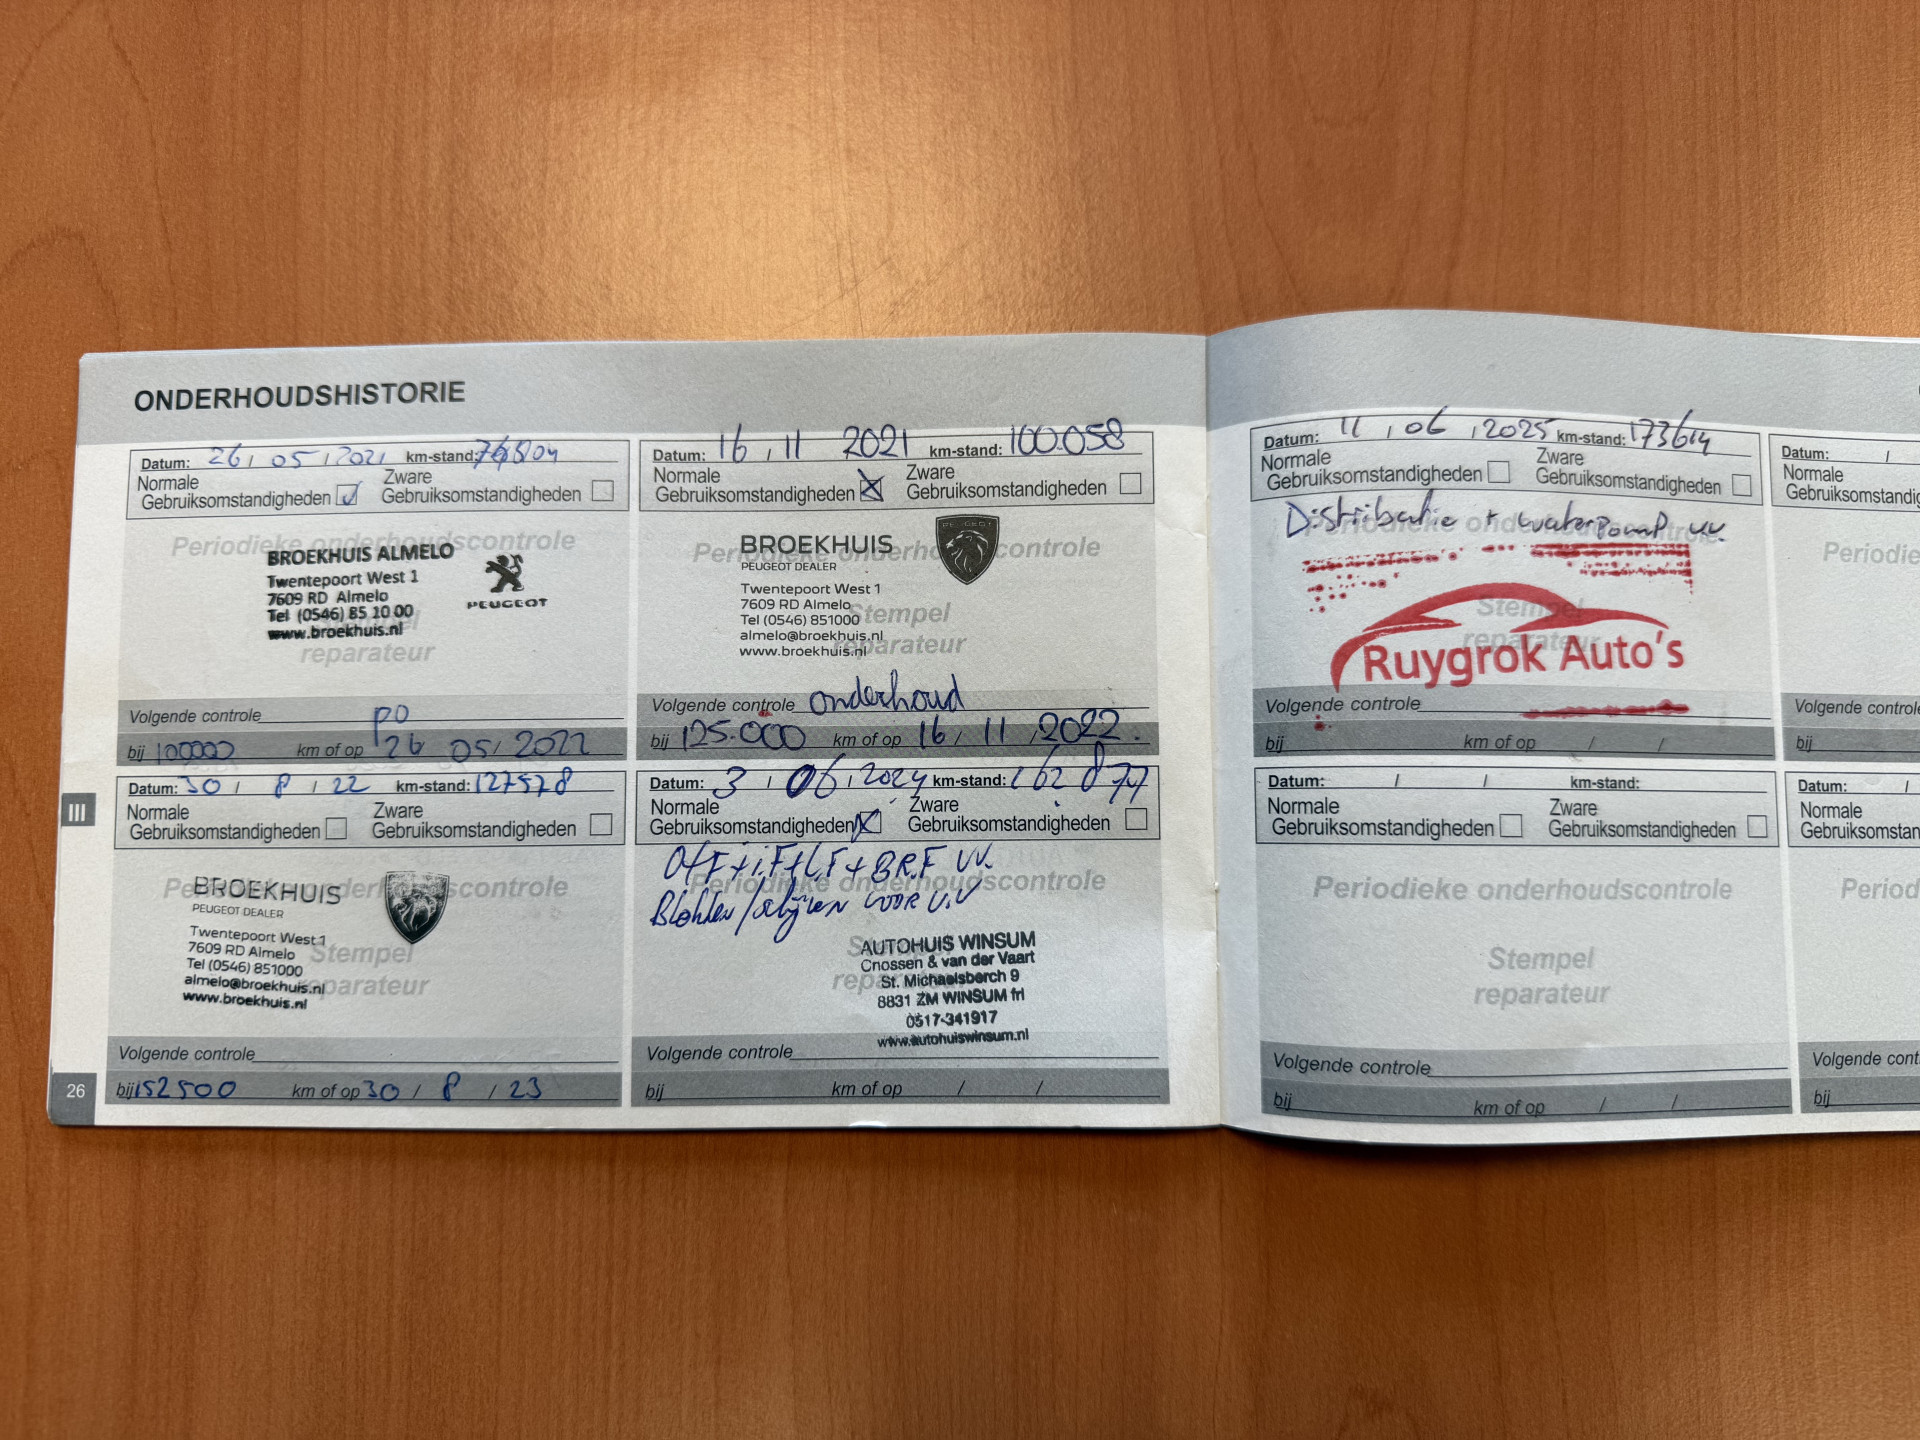 ONDERHOUDSHISTORIE
Datum: 26 / 05 / 2021 km-stand:
Normale Gebruiksomstandigheden
Zware Gebruiksomstandigheden
Periodieke onderhoudscontrole
BROEKHUIS ALMELO
Twentepoort West 1
7609 RD Almelo
Tel (0546) 85 10 00
www.broekhuis.nl
PEUGEOT
Stempel
reparateur
Volgende controle PO
bij 100000 km of op 26 05 / 2022
Datum: 16 / 11 2021 km-stand: 100.058
Normale Gebruiksomstandigheden
Zware Gebruiksomstandigheden
Periodieke onderhoudscontrole
BROEKHUIS
PEUGEOT DEALER
PEUGEOT
Twentepoort West 1
7609 RD Almelo
Tel (0546) 851000
almelo@broekhuis.nl
www.broekhuis.nl
Stempel
reparateur
Volgende controle onderhoud
bij 125.000 km of op 16 / 11 / 2022.
III
Datum: 30 / 8 / 22 km-stand: 127578
Normale Gebruiksomstandigheden
Zware Gebruiksomstandigheden
Periodieke onderhoudscontrole
BROEKHUIS
PEUGEOT DEALER
Twentepoort West 1
7609 RD Almelo
Tel (0546) 851000
almelo@broekhuis.nl
www.broekhuis.nl
Stempel
reparateur
Volgende controle
bij 152500 km of op 30 / 8 / 23
26
Datum: 3 / 06 / 2024 km-stand: 162877
Normale Gebruiksomstandigheden
Zware Gebruiksomstandigheden
O+F + i.F + L.F + BR.F VV.
Blokken / schijven voor V.V
Periodieke onderhoudscontrole
Stempel
reparateur
AUTOHUIS WINSUM
Cnossen & van der Vaart
St. Michaelsberch 9
8831 ZM WINSUM frl
0517-341917
www.autohuiswinsum.nl
Volgende controle
bij km of op / /
Datum: 11 / 06 / 2025 km-stand: 173614
Normale Gebruiksomstandigheden
Zware Gebruiksomstandigheden
Distributie + waterpomp vv.
Periodieke onderhoudscontrole
Stempel
reparateur
Ruygrok Auto's
Volgende controle
bij km of op / /
Datum: / / km-stand:
Normale Gebruiksomstandigheden
Zware Gebruiksomstandigheden
Periodieke onderhoudscontrole
Stempel
reparateur
Volgende controle
bij km of op / /
Datum: /
Normale
bij
Datum: /
Normale
bij